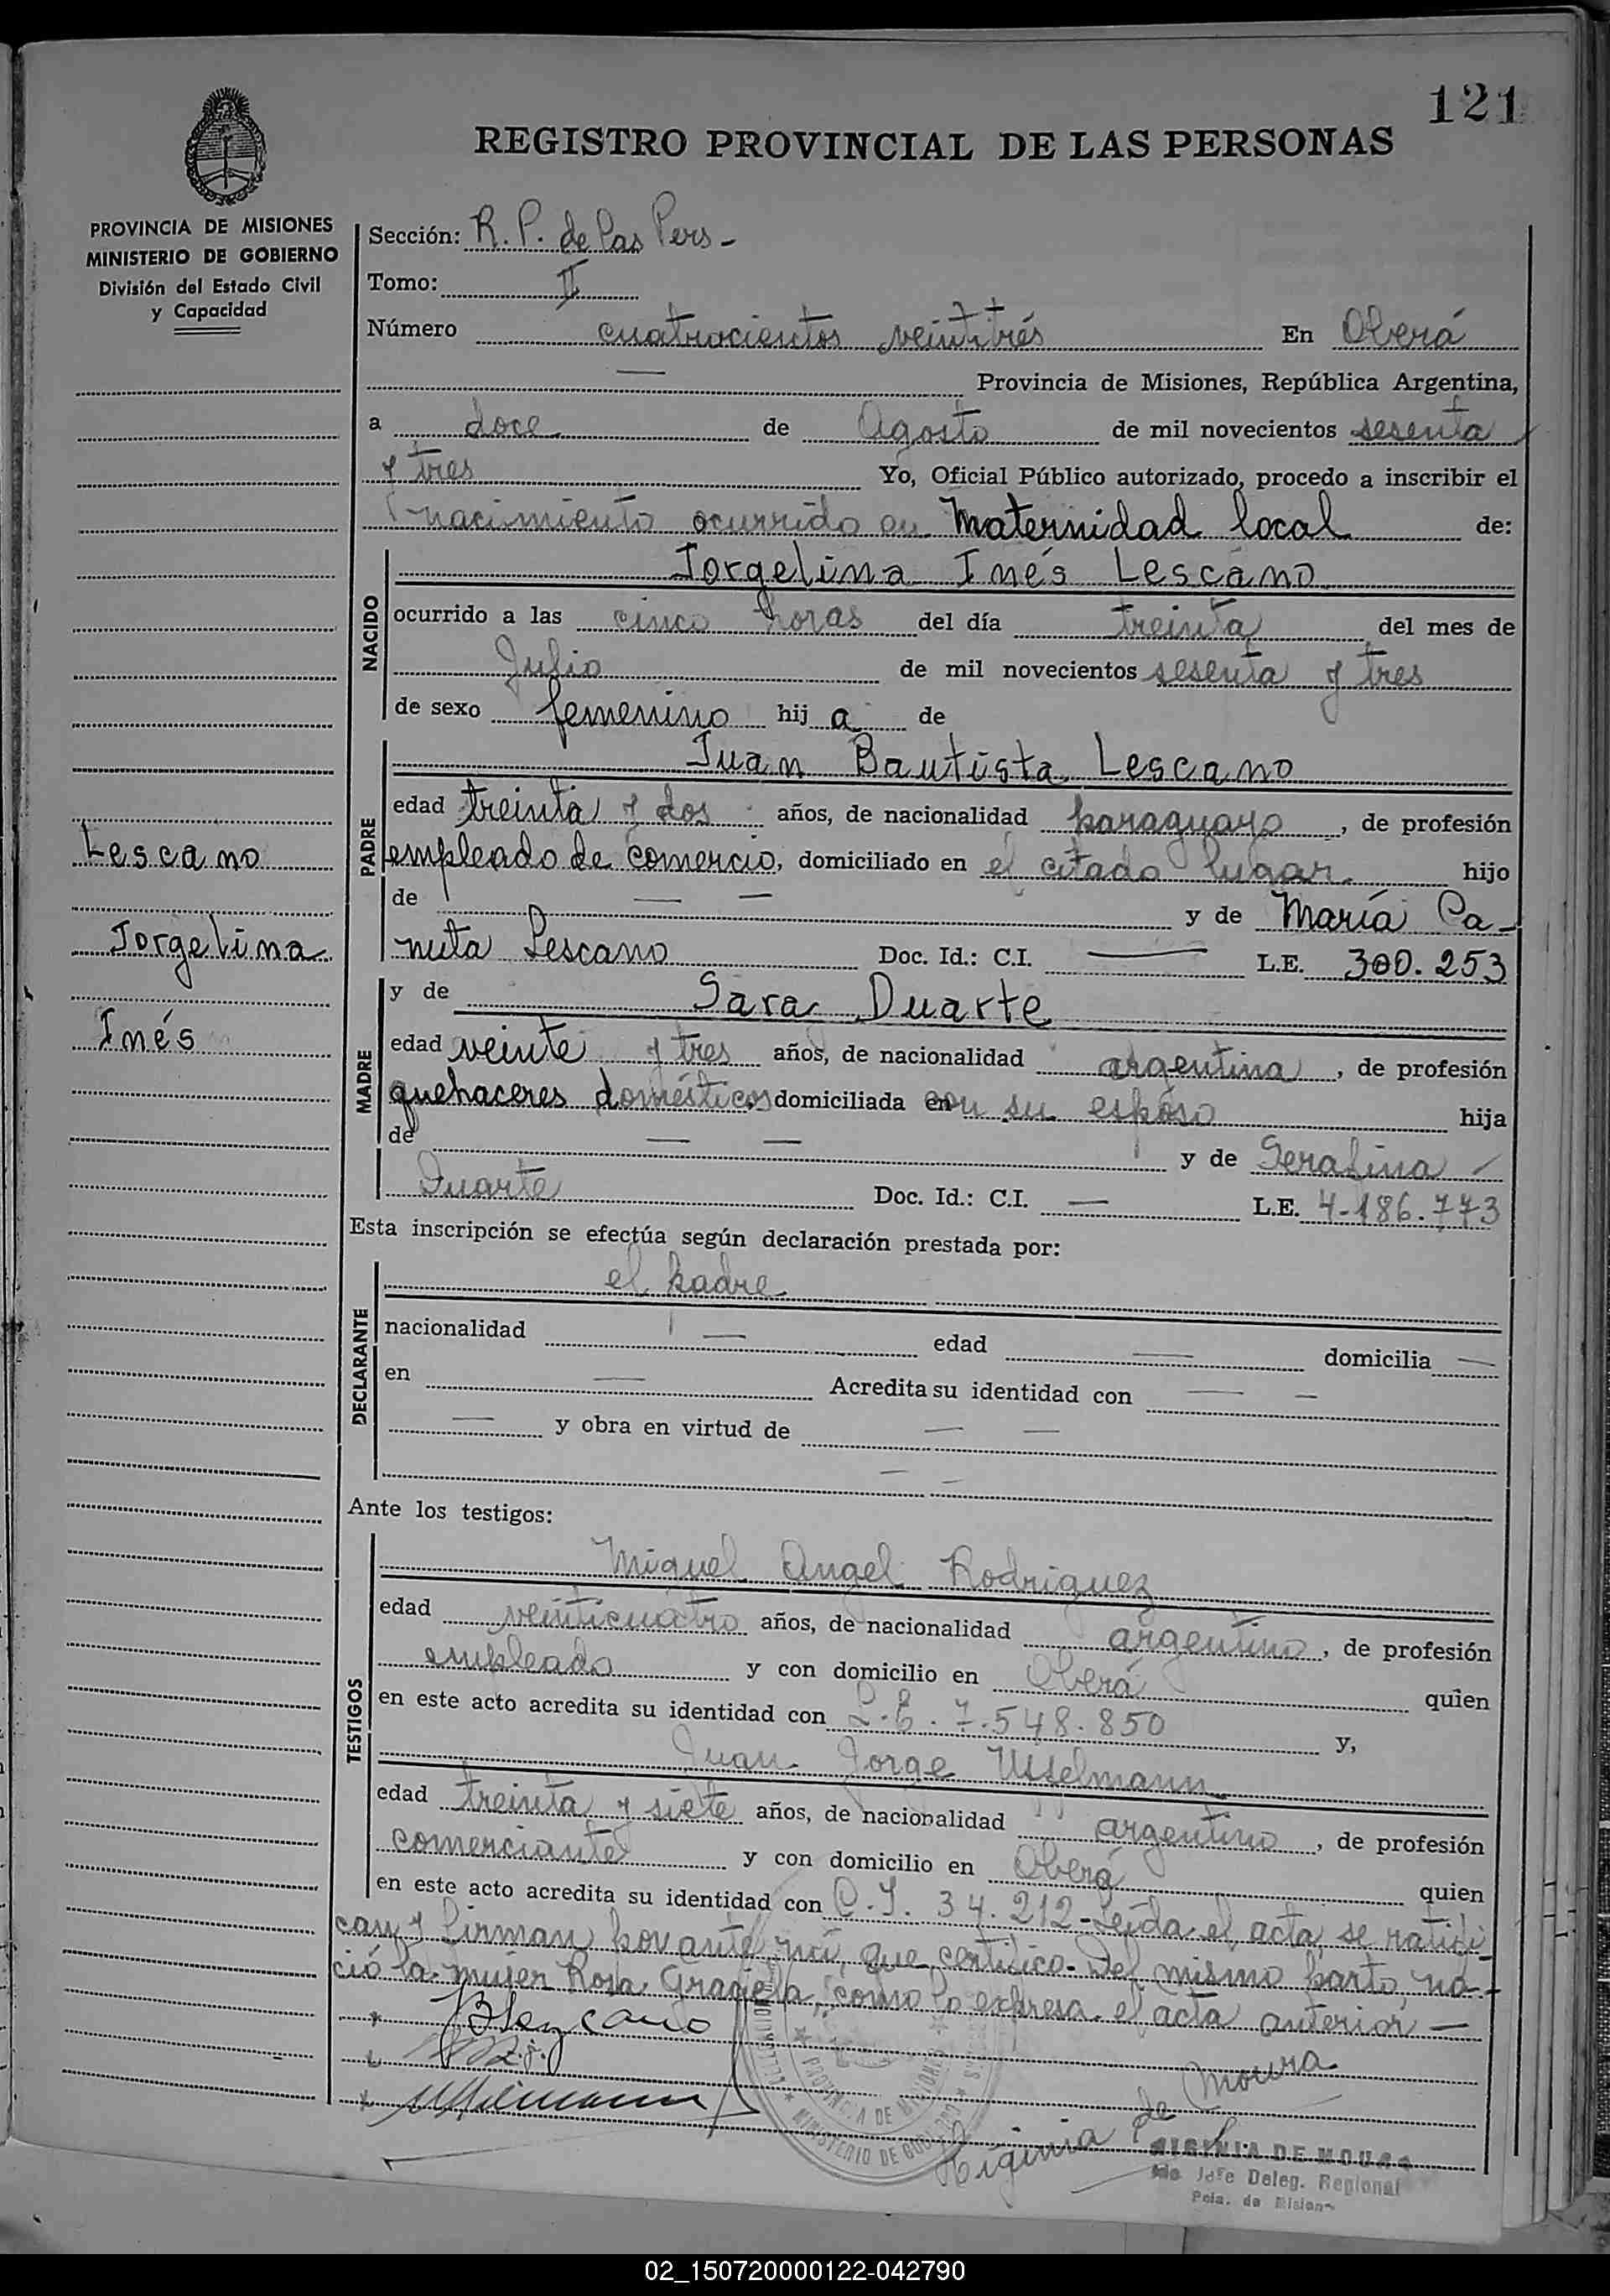 121
REGISTRO PROVINCIAL DE LAS PERSONAS
PROVINCIA DE MISIONES
MINISTERIO DE GOBIERNO
División del Estado Civil
y Capacidad
Sección: R. P. de las Pers -
Tomo: II
Número cuatrocientos veintitrés En Oberá
— Provincia de Misiones, República Argentina,
a doce de Agosto de mil novecientos sesenta
y tres Yo, Oficial Público autorizado, procedo a inscribir el
nacimiento ocurrido en Maternidad local de:
NACIDO
Jorgelina Inés Lescano
ocurrido a las cinco horas del día treinta del mes de
Julio de mil novecientos sesenta y tres
de sexo femenino hij a de
PADRE
Juan Bautista Lescano
edad treinta y dos años, de nacionalidad paraguayo, de profesión
empleado de comercio, domiciliado en el citado lugar hijo
de — — y de María Ca-
nuta Lescano Doc. Id.: C.I. — L.E. 300.253
Lescano
Jorgelina
Inés
MADRE
y de Sara Duarte
edad veinte y tres años, de nacionalidad argentina, de profesión
quehaceres domésticos domiciliada en con su esposo hija
de — — y de Serafina
Duarte Doc. Id.: C.I. — L.E. 4-186.773
Esta inscripción se efectúa según declaración prestada por:
DECLARANTE
el padre
nacionalidad — edad — domicilia —
en — Acredita su identidad con — —
— y obra en virtud de — —
— —
Ante los testigos:
TESTIGOS
Miguel Angel Rodriguez
edad veinticuatro años, de nacionalidad argentino, de profesión
empleado y con domicilio en Oberá quien
en este acto acredita su identidad con L.E. 7.548.850 y,
Juan Jorge Usselmann
edad treinta y siete años, de nacionalidad argentino, de profesión
comerciante y con domicilio en Oberá quien
en este acto acredita su identidad con C.I. 34.212 - Leída el acta, se ratifi-
can y firman por ante mí, que certifico. Del mismo parto, na-
ció la mujer Rosa Graciela, como lo expresa el acta anterior —
PROVINCIA DE MISIONES
MINISTERIO DE GOBIERNO
Higinia de Moura
HIGINIA DE MOURA
Jefe Deleg. Regional
Pcia. de Misiones
02_150720000122-042790